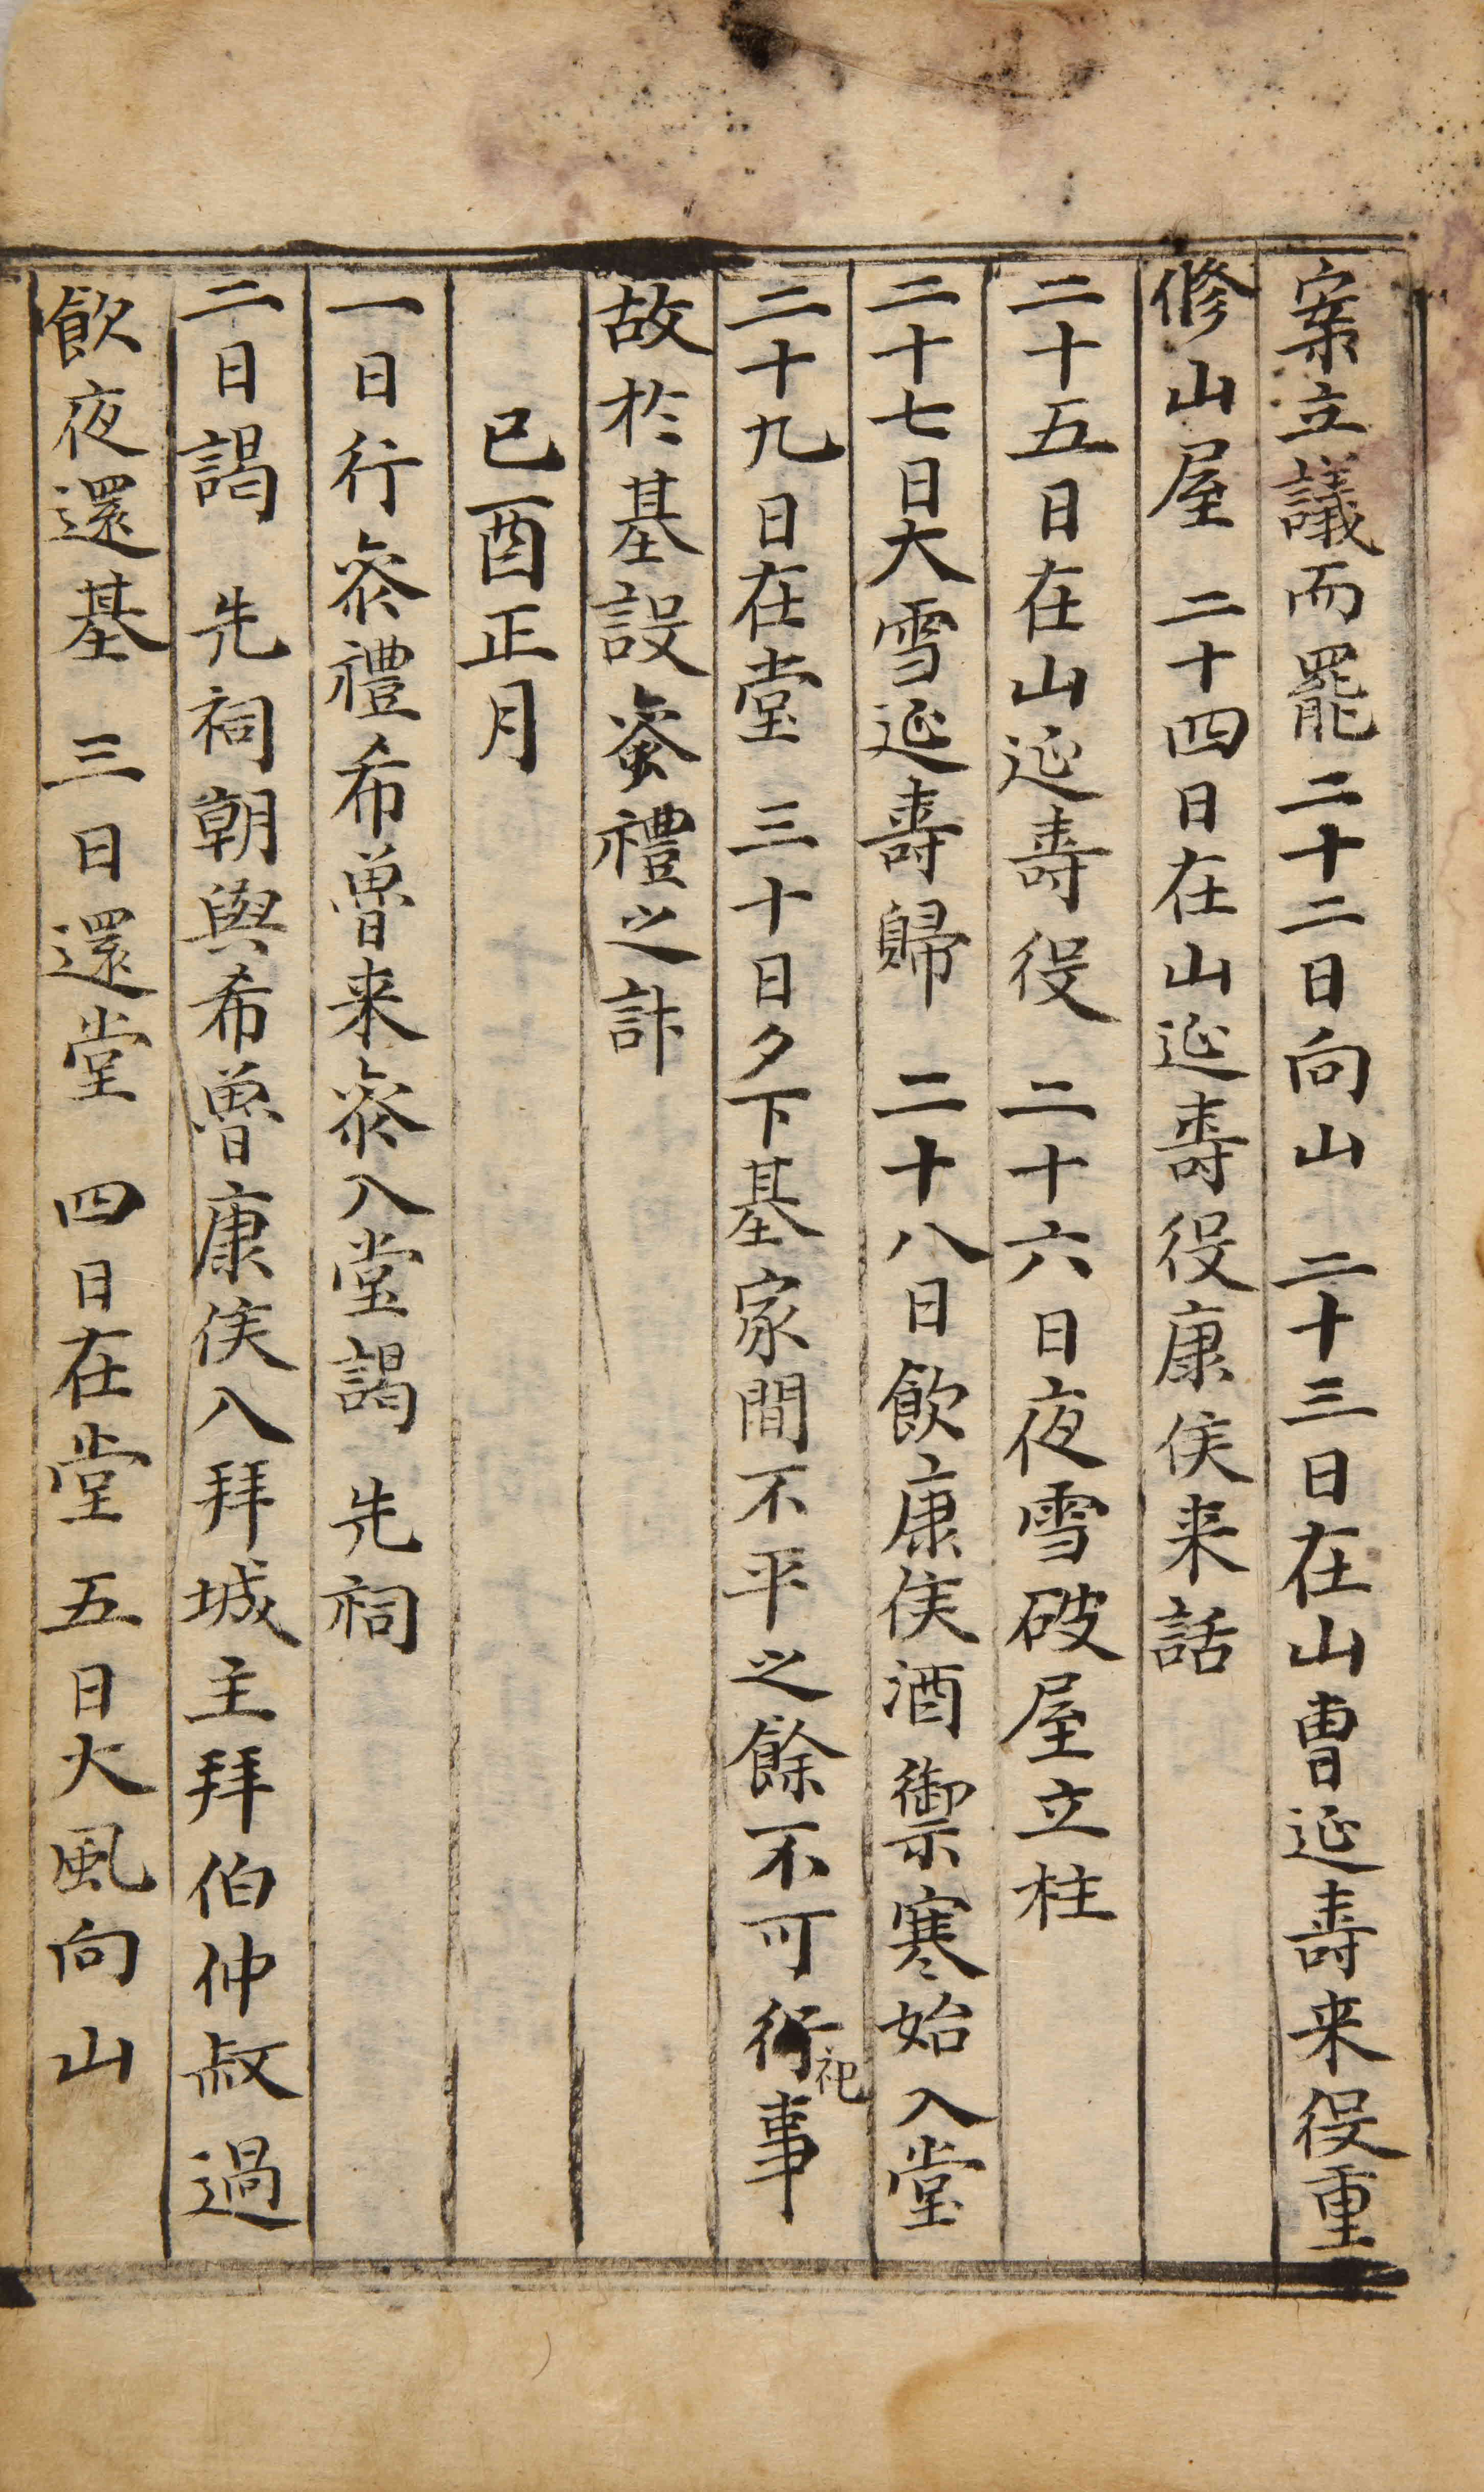 案立議而罷 二十二日向山 二十三日在山曺延壽来役重
修山屋 二十四日在山延壽役康侯来話
二十五日在山延壽役 二十六日夜雪破屋立柱
二十七日大雪延壽歸 二十八日飮康侯酒禦寒始入堂
二十九日在堂 三十日夕下基家間不平之餘不可行祀事
故於基設奠禮之計
己酉正月
一日行祭禮希曾来祭入堂謁 先祠
二日謁 先祠朝與希曾康侯入拜城主拜伯仲叔過
飮夜還基 三日還堂 四日在堂 五日大風向山